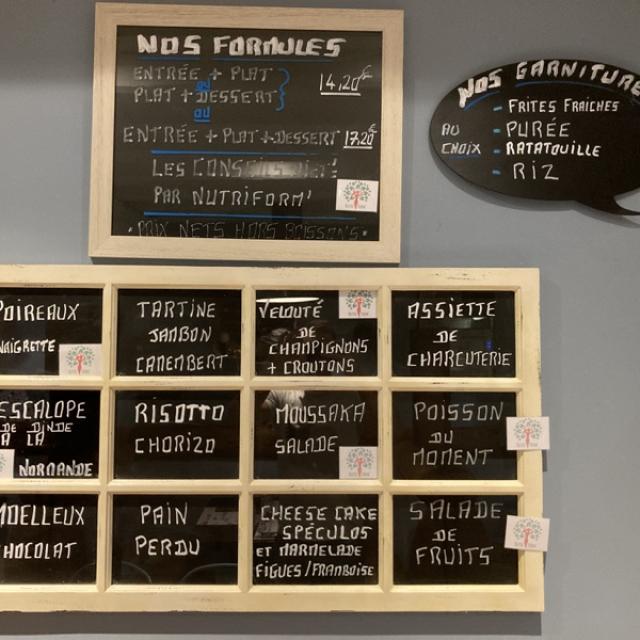 NOS FORMULES
ENTRÉE + PLAT
ou
PLAT + DESSERT
14,20€
ou
ENTRÉE + PLAT + DESSERT 17.20€
LES
PAR NUTRIFORM'
PRIX NETS HORS BOISSONS
NOS GARNITURE
AU CHOIX
- FRITES FRAICHES
- PURÉE
- RATATOUILLE
- RIZ
POIREAUX
NAIGRETTE
TARTINE
JAMBON
CAMEMBERT
VELOUTÉ
DE
CHAMPIGNONS
+ CROUTONS
ASSIETTE
DE
CHARCUTERIE
ESCALOPE
DE DINDE
A LA
NORMANDE
RISOTTO
CHORIZO
MOUSSAKA
SALADE
POISSON
DU
MOMENT
MOELLEUX
CHOCOLAT
PAIN
PERDU
CHEESE CAKE
SPÉCULOS
ET MARMELADE
FIGUES/FRAMBOISE
SALADE
DE
FRUITS